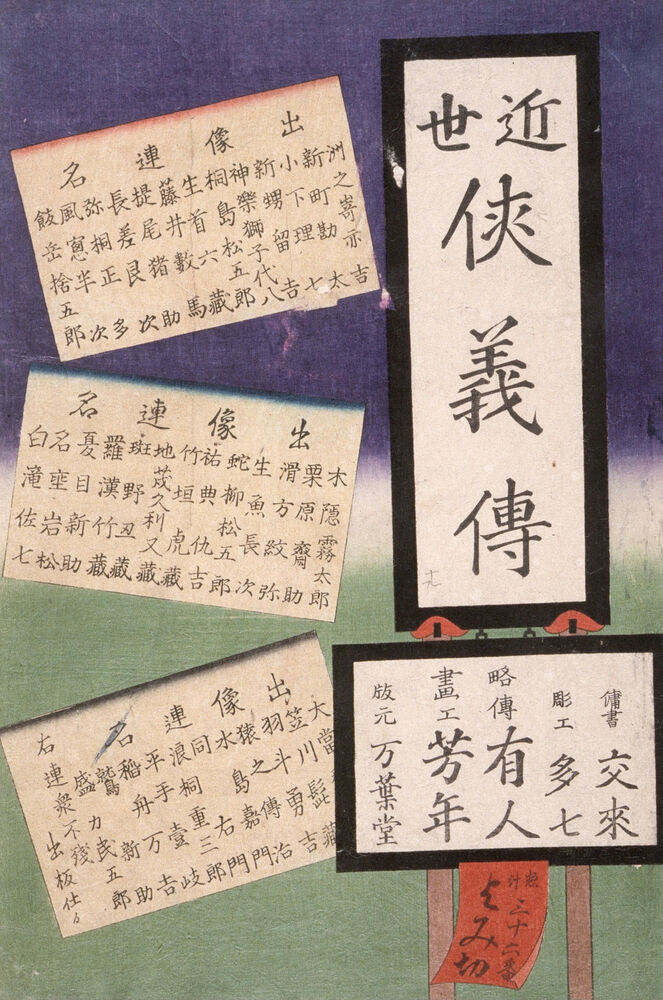 近世
俠義傳
傭書 交來
彫工 多七
略傳 有人
畫工 芳年
版元 万葉堂
三十六番
よみ切
出像連名
洲之嵜亦吉
新町勘太
小下理七
新甥留吉
神樂獅子代八
桐島松五郎
生首六藏
藤井數馬
提尾猪助
長差艮次
弥桐正多
風窓半次
鼓岳捨五郎
出像連名
木隠霧太郎
栗原齋助
滑方紋弥
生魚長次
蛇柳松五郎
祐典仇吉
竹垣虎藏
地茂久利又藏
斑野丑藏
羅漢竹藏
憂目新助
名埀岩松
白滝佐七
出像連名
大當髭藏
笠川勇吉
羽斗傳治
猿之嘉門
水島右門
同桐重三郎
浪手壹岐
平舟万吉
稲新助
鷲力民五郎
右連衆不残出板仕